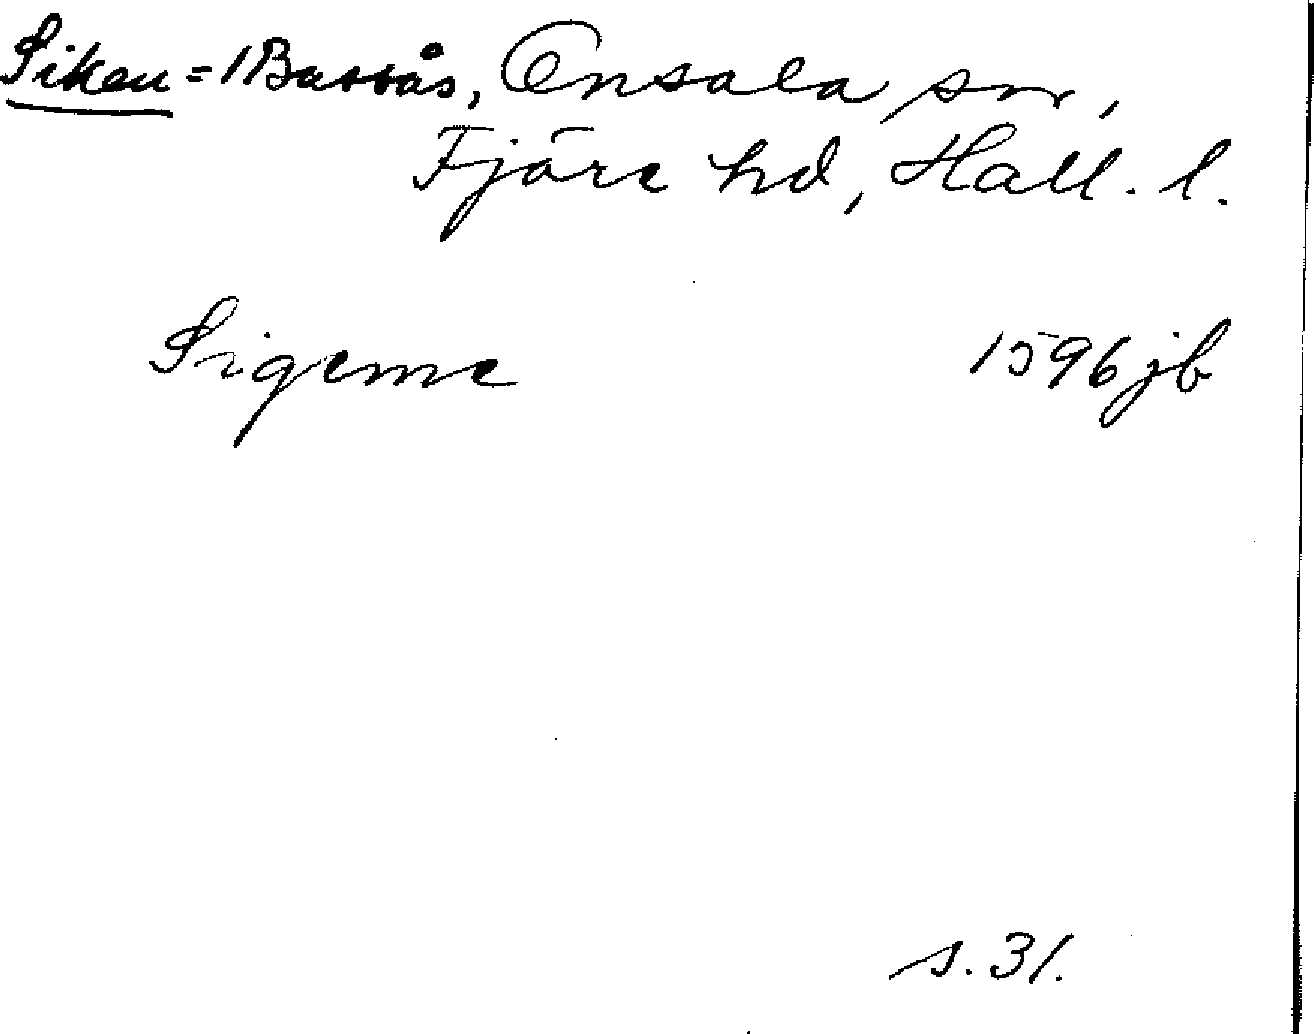 Siken = /Bassås, Onsala sn,
Fjäre hd, Hall. l.
Sigeme 1596 jb
s. 31.